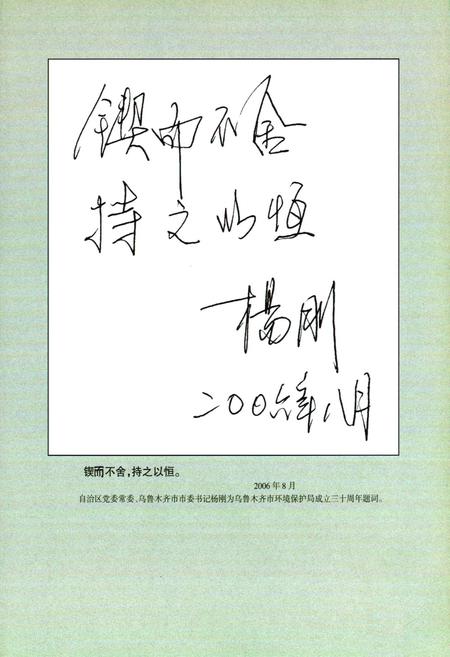 锲而不舍
持之以恒
楊刚
二〇〇六年八月
锲而不舍,持之以恒。
2006年8月
自治区党委常委、乌鲁木齐市市委书记杨刚为乌鲁木齐市环境保护局成立三十周年题词。